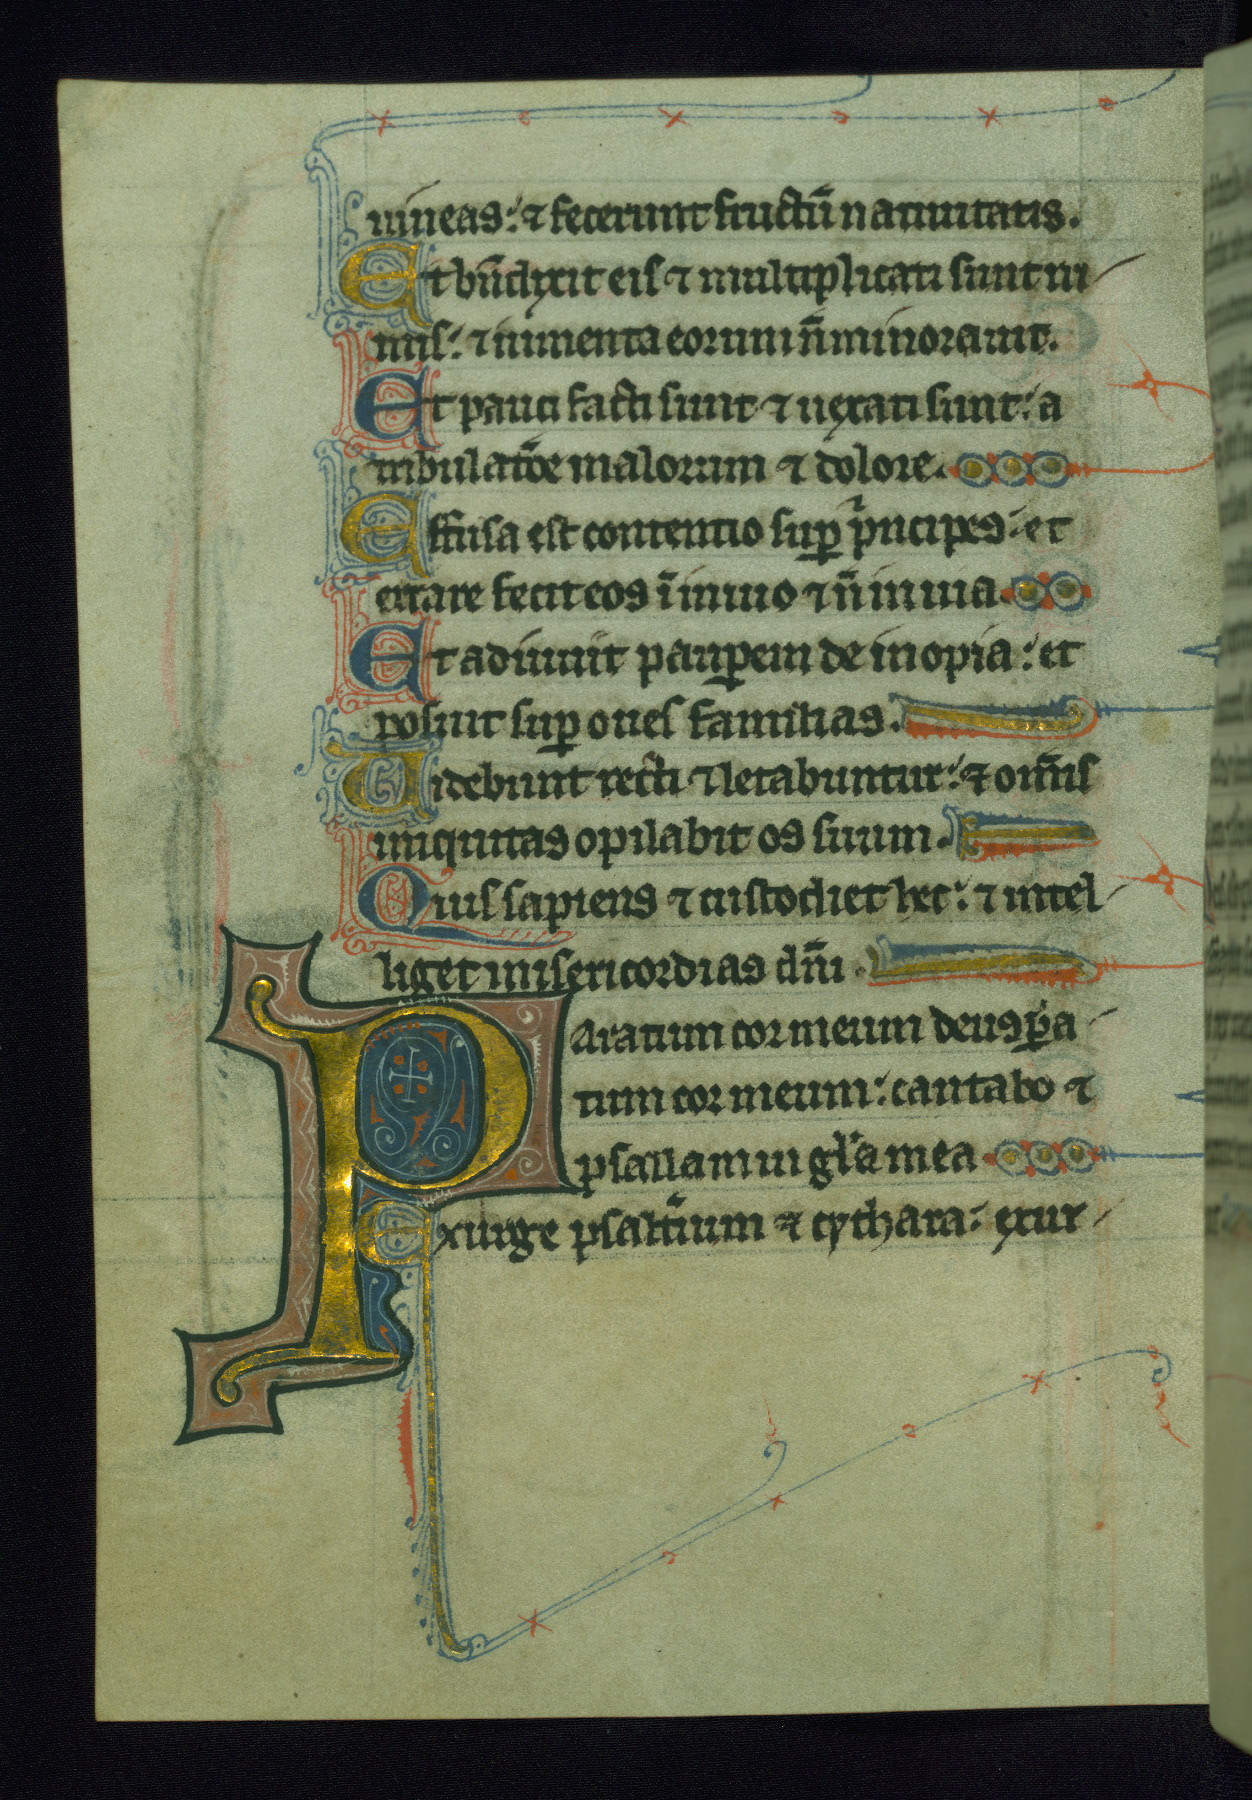 uineas: ⁊ fecerunt fructū natiuitatis.
Et bn̄dixit eis ⁊ multiplicati sunt ni
mis: ⁊ iumenta eorum n̄ minorauit.
Et pauci facti sunt ⁊ uexati sunt: a
tribulatōe malorum ⁊ dolore.
Effusa est contentio suꝑ pͥncipes: et
errare fecit eos ī inuio ⁊ n̄ in uia.
Et adiuuit pauꝑem de inopia: et
posuit suꝑ oues familias.
Uidebunt recti ⁊ letabuntur: ⁊ om̄is
iniquitas opilabit os suum.
Quis sapiens ⁊ custodiet hec: ⁊ intel
liget misericordias dn̄i.
Paratum cor meum deus pͣa
tum cor meum: cantabo ⁊
psallam in gl̄a mea
Exurge psaltīum ⁊ cythara: exur